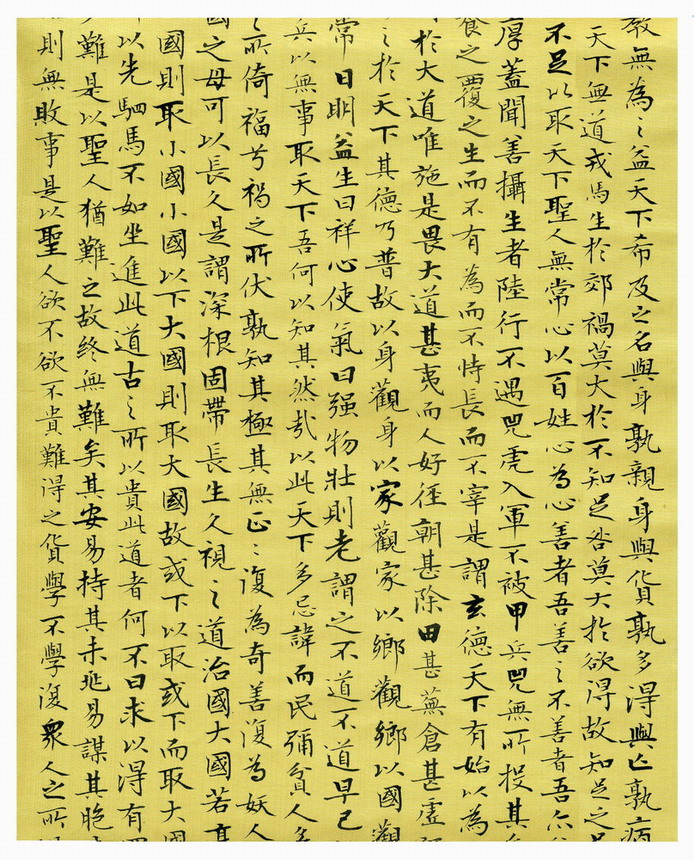 教無為〻益天下希及之名與身孰親身與貨孰多得與亡孰病
天下無道戎馬生於郊禍莫大於不知足咎莫大於欲得故知足之足
不足以取天下聖人無常心以百姓心為心善者吾善〻不善者吾亦
厚蓋聞善攝生者陸行不遇兕虎入軍不被甲兵兕無所投其
養之覆之生而不有為而不恃長而不宰是謂玄德天下有始以為
於大道唯施是畏大道甚夷而人好徑朝甚除田甚蕪倉甚虛
之於天下其德乃普故以身觀身以家觀家以鄉觀鄉以國觀
常日明益生曰祥心使氣曰强物壯則老謂之不道不道早已
兵以無事取天下吾何以知其然哉以此天下多忌諱而民彌貧人
之所倚福兮禍之所伏孰知其極其無正〻復為奇善復為妖人
國之母可以長久是謂深根固蔕長生久視之道治國大國若
國則取小國小國以下大國則取大國故或下以取或下而取大國
以先駟馬不如坐進此道古之所以貴此道者何不曰求以得有
難是以聖人猶難之故終無難矣其安易持其未兆易謀其脆
則無敗事是以聖人欲不欲不貴難得之貨學不學復衆人之所